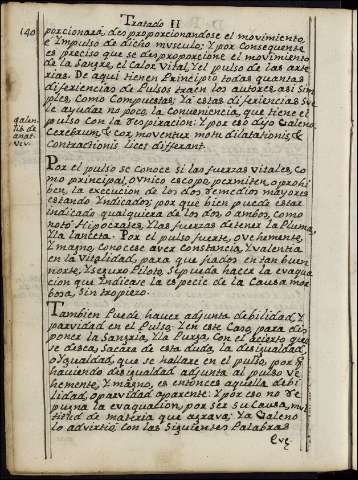 Tratado II
140
porcionarà, desproporcionandose el movimiento,
e Ympulso de dicho musculo; Y por Consequente
es preciso que se desproporcione el movimiento
de la Sangre, el Calor Vital, Y el pulso de las arte
rias. De aqui tienen Principio todas quantas
diferiencias de Pulsos traen los autores, asi Sim
ples, Como Compuestas; Ya estas diferiencias Sue
le ayudar no poca la Conveniencia, que tiene el
pulso Con la respiracion: Y por eso dijo Galeno
Galen.
lib. de
anat.
viv.
Cerebrum, & cor, moventur motu dilatationis, &
contractionis licet differant.
Por el pulso se conoce si las fuerzas vitales, Co
mo principal, Y unico escopo, permiten, o prohi
ben, la execucion de los dos remedios mayores
estando Yndicados; por que bien puede estar
indicado qualquiera de los dos, o ambos, como
notò Hipocrates, Y las fuerzas detener la Pluma,
Y la lanceta. Por el pulso fuerte, o vehemente,
Y magno, Conocese aver Constancia, Y valentia
en la Vitalidad, para que fiados en tan buen
norte, Y Seguro Piloto, Se pueda hacer la evacua
cion que Yndicare la especie de la Causa mor
bosa, Sin tropiezo.
Tambien Puede haver adjunta debilidad, Y
parvidad en el Pulso: Y en este Caso, para dis
poner la Sangria, Y la Purga, Con el acierto que
se desea, Sacarà de esta duda, la desigualdad,
o Ygualdad, que se hallare en el pulso; por q
haviendo desigualdad adjunta al pulso ve
hemente, Y magno, es entonces aquella debi
lidad, o parvidad aparente: Y por eso no re
pugna la evaquacion, por Ser su Causa, mul
titud de materia que agrava; Y a Galeno
lo advirtiò Con las Siguientes Palabras